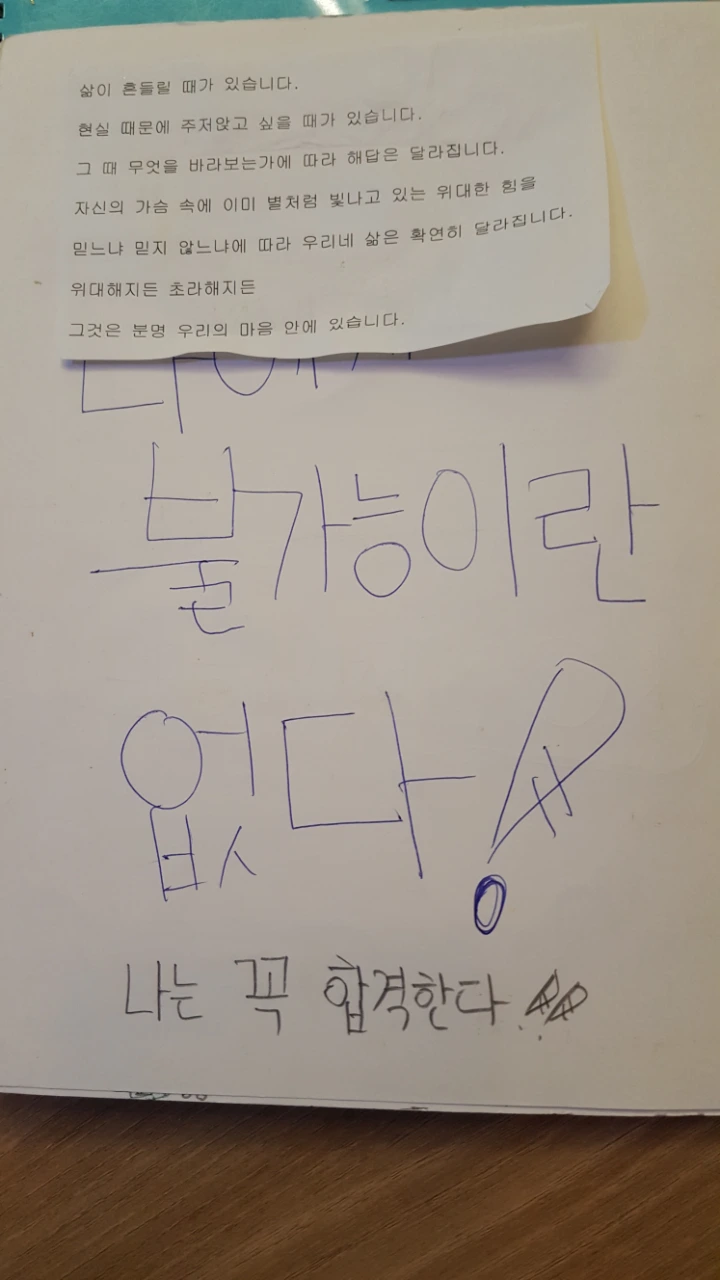 삶이 흔들릴 때가 있습니다.
현실 때문에 주저앉고 싶을 때가 있습니다.
그 때 무엇을 바라보는가에 따라 해답은 달라집니다.
자신의 가슴 속에 이미 별처럼 빛나고 있는 위대한 힘을
믿느냐 믿지 않느냐에 따라 우리네 삶은 확연히 달라집니다.
위대해지든 초라해지든
그것은 분명 우리의 마음 안에 있습니다.
불가능이란
없다!
나는 꼭 합격한다!!